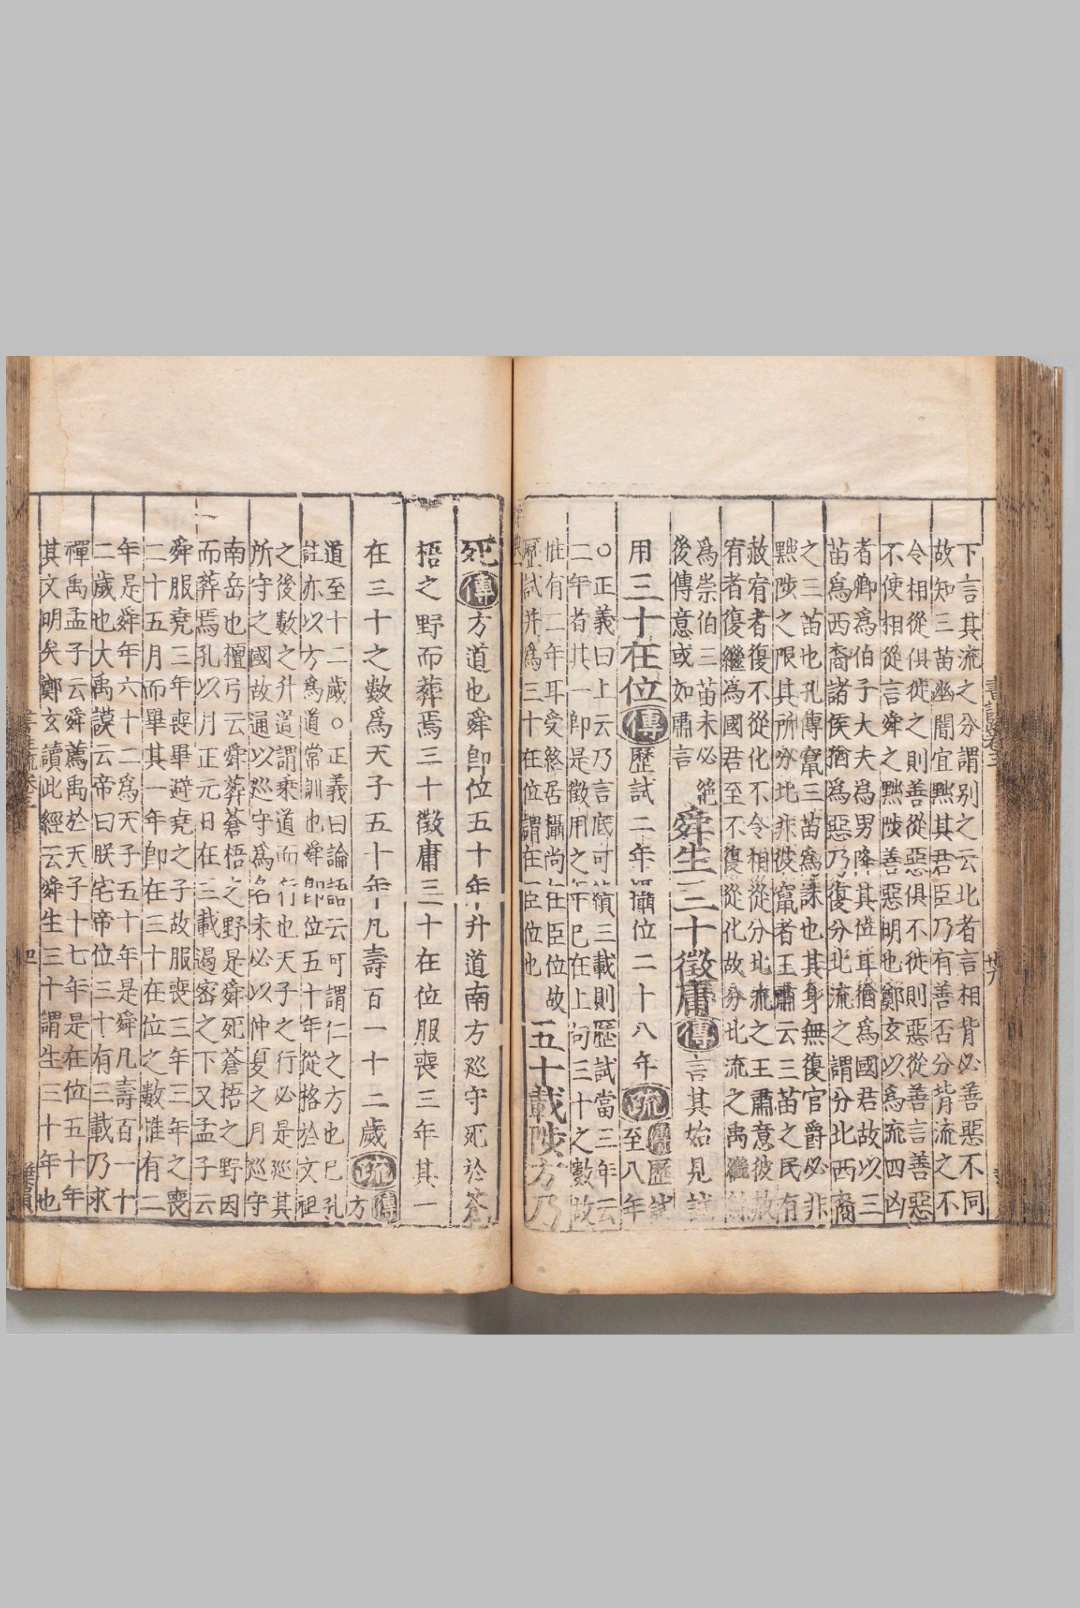 下言其流之分謂別之云北者言相背必善惡不同
故知三苗幽闇宜黜其君臣乃有善否分背流之不
令相從俱徙之則善從惡俱不徙則惡從善言善惡
不使相從言舜之黜陟善惡明也鄭玄以為流四凶
者卿為伯子大夫為男降其位耳猶為國君故以三
苗為西裔諸侯猶為惡乃復分北流之謂分北西裔
之三苗也孔傳竄三苗為誅也其身無復官爵必非
黜陟之限其所分北非彼竄者王肅云三苗之民有
赦宥者復不從化不令相從分北流之王肅意彼赦
宥者復繼為國君至不復從化故分北流之禹繼鯀
為崇伯三苗未必絕
後傳意或如肅言
舜生三十徵庸傳言其始見試
用三十在位傳歷試二年攝位二十八年疏傳歷試
至八年
○正義曰上云乃言底可績三載則歷試當三年云
二年者其一即是徵用之年已在上句三十之數故
惟有二年耳受終居攝尚在臣位故
歷試并為三十在位謂在臣位也
五十載陟方乃
死傳方道也舜即位五十年升道南方巡守死於蒼
梧之野而葬焉三十徵庸三十在位服喪三年其一
在三十之數為天子五十年凡壽百一十二歲疏傳
方
道至十二歲○正義曰論語云可謂仁之方也巳孔
註亦以方為道常訓也舜即位五十年從格於文祖
之後數之升道謂乘道而行也天子之行必是巡其
所守之國故通以巡守為名未必以仲夏之月巡守
南岳也檀弓云舜葬蒼梧之野是舜死蒼梧之野因
而葬焉孔以月正元日在三載遏密之下又孟子云
舜服堯三年喪畢避堯之子故服喪三年三年之喪
二十五月而畢其一年即在三十在位之數惟有二
年是舜年六十二為天子五十年是舜凡壽百一十
二歲也大禹謨云帝曰朕宅帝位三十有三載乃求
禪禹孟子云舜薦禹於天子十七年是在位五十年
其文明矣鄭玄讀此經云舜生三十謂生三十年也